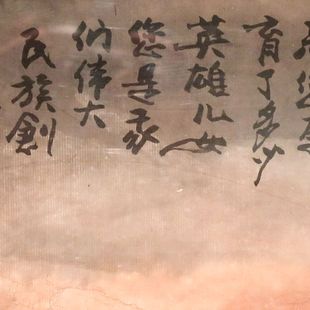 育了多少
英雄儿女
您是我
们伟大
民族創